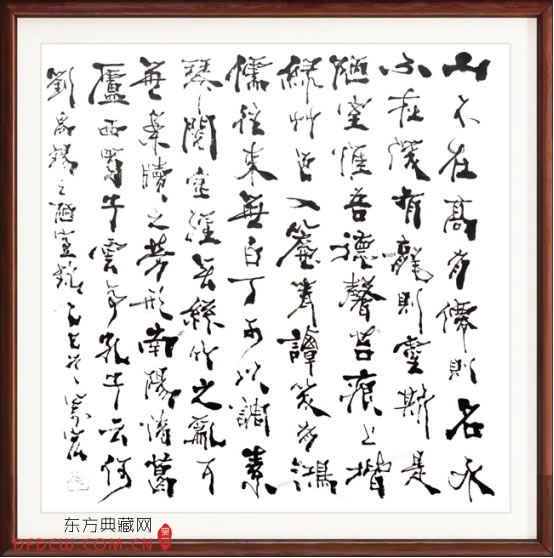 山不在高有僊則名水
不在深有龍則靈斯是
陋室惟吾德馨苔痕上堦
綠艸色入簾青譚笑有鴻
儒往來無白丁可以調素
琴閱金經無絲竹之亂耳
無案牘之勞形南陽諸葛
廬西蜀子雲亭孔子云何
劉禹錫之陋室銘
东方典藏网
DFDCW.COM.CN